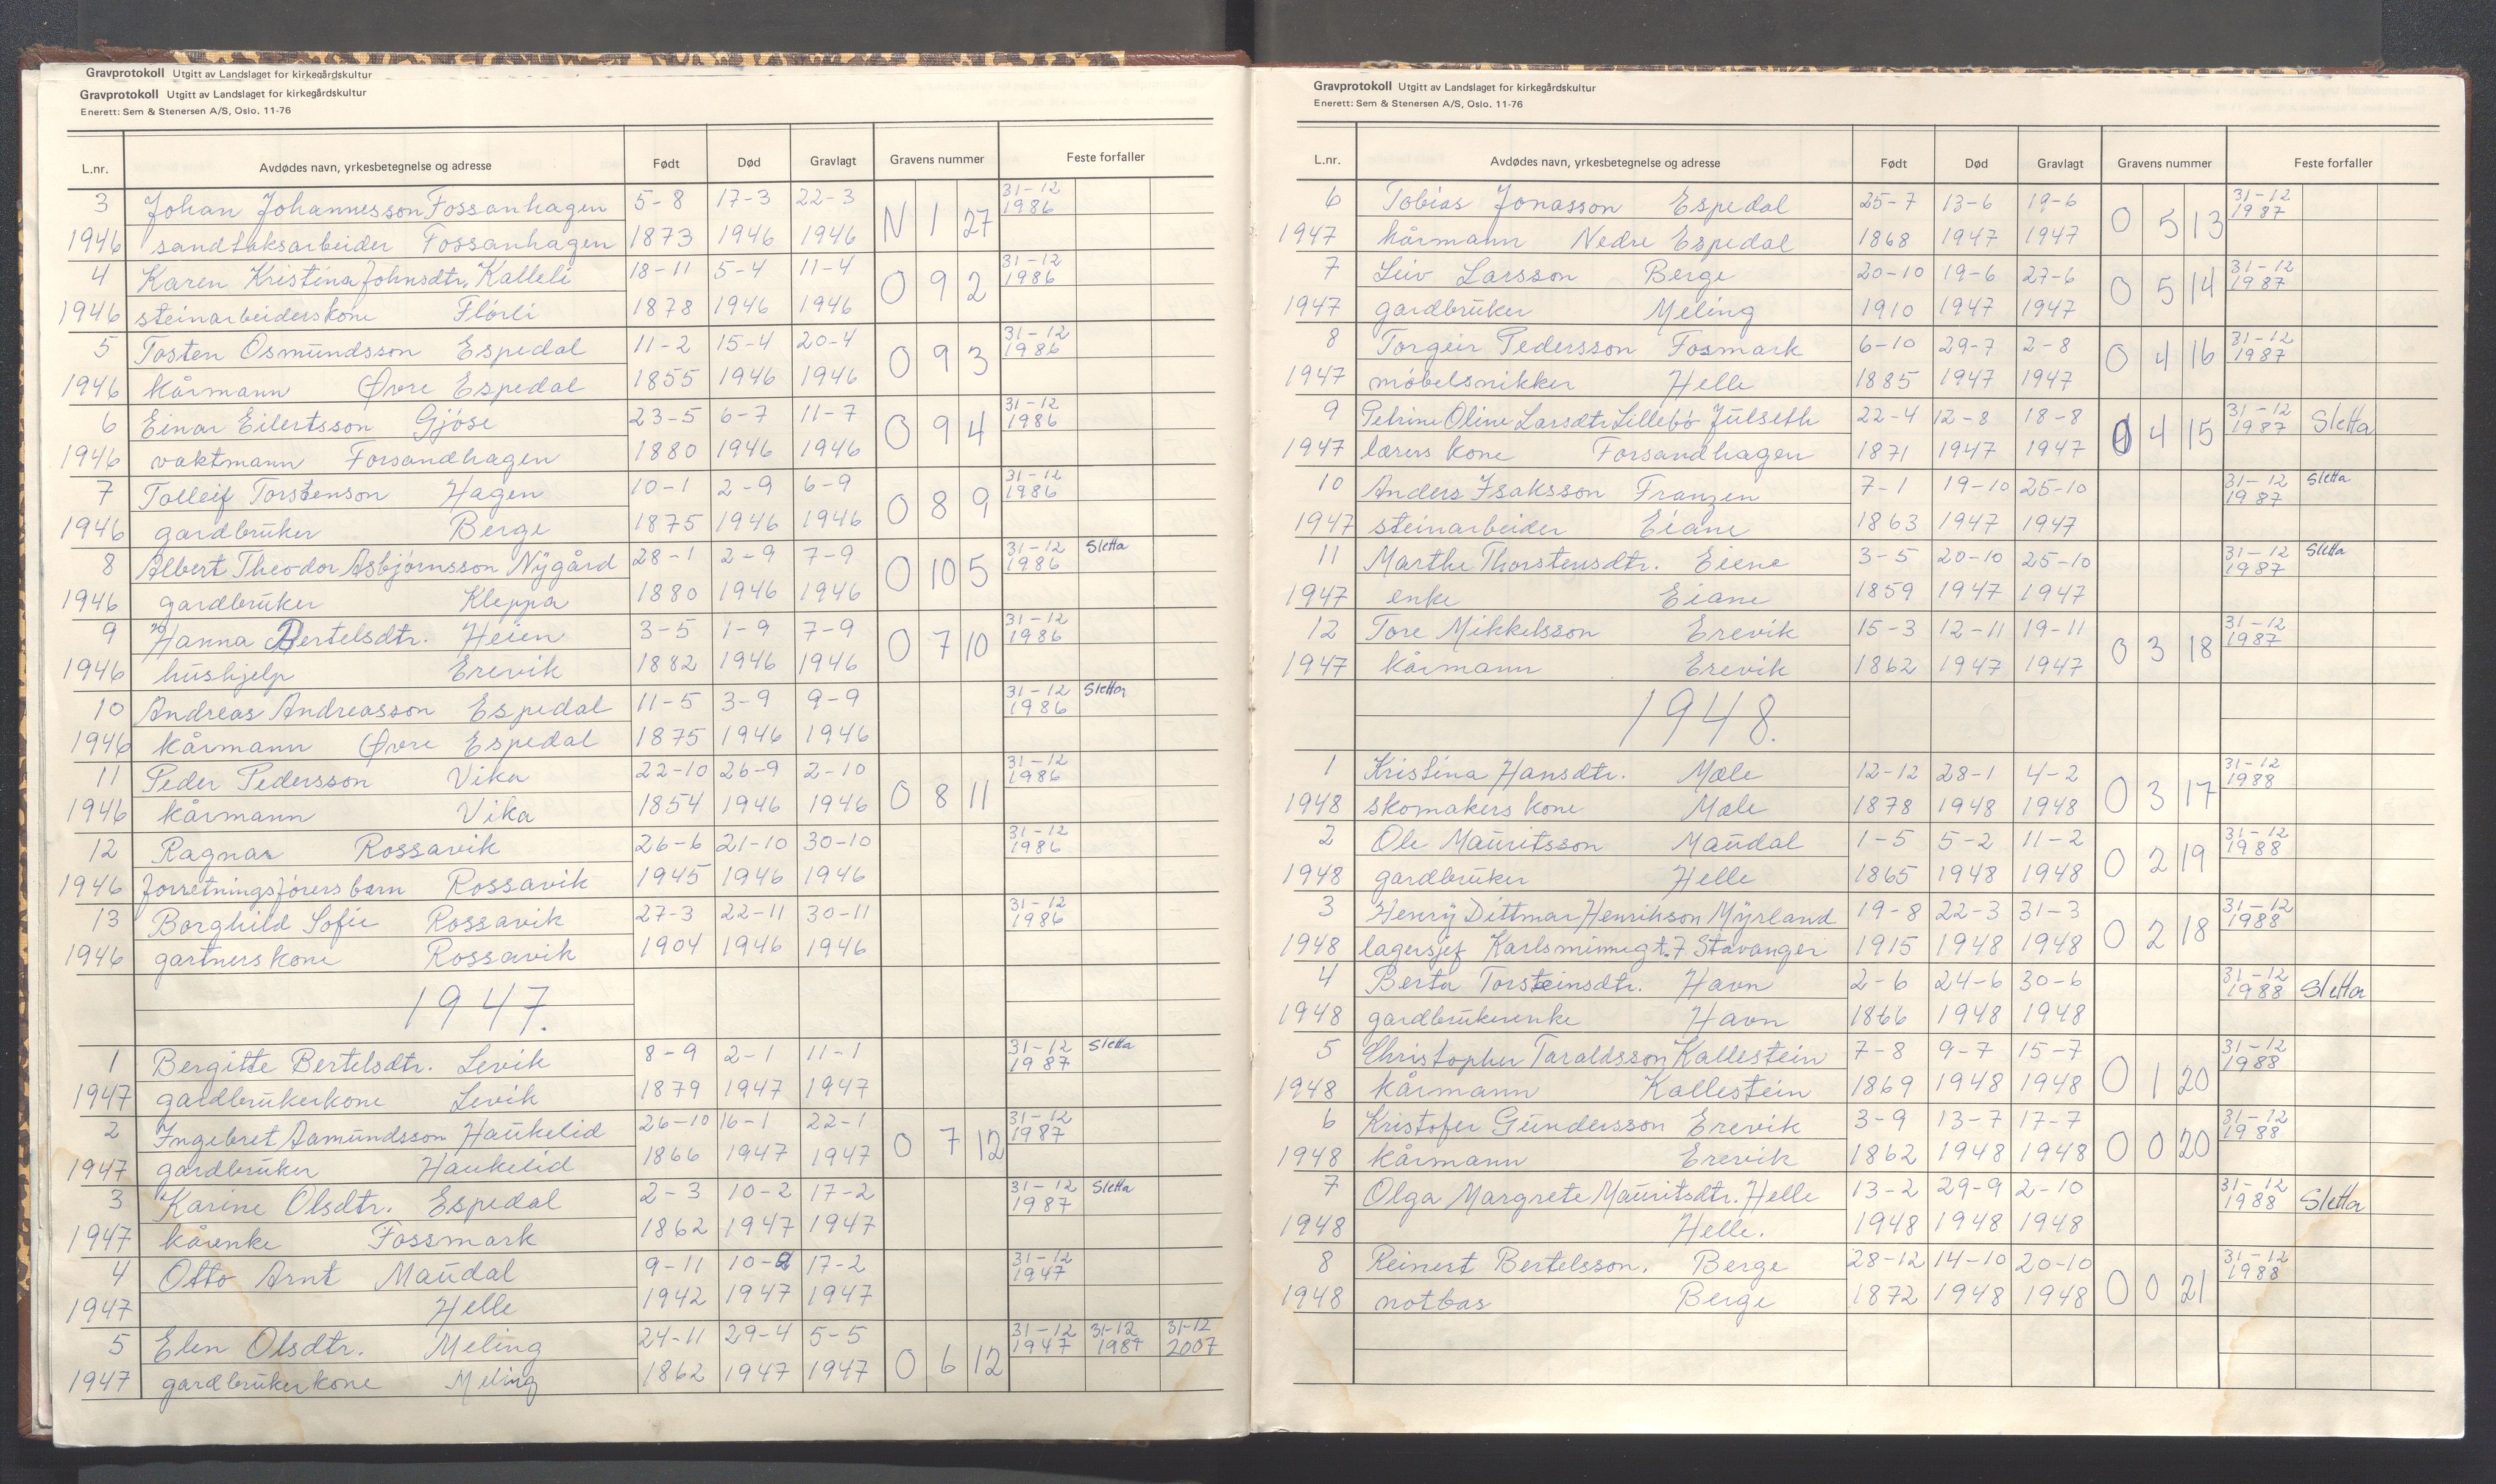 Gravprotokoll Utgitt av Landslaget for kirkegårdskultur
Gravprotokoll Utgitt av Landslaget for kirkegårdskultur
Enerett: Sem & Stenersen A/S, Oslo. 11-76
L.nr. Avdødes navn, yrkesbetegnelse og adresse Født Død Gravlagt Gravens nummer Feste forfaller
3 Johan Johannesson Fossanhagen 5-8 17-3 22-3 N 1 27 31-12 1986
1946 sandtaksarbeider Fossanhagen 1873 1946 1946
4 Karen Kristina Johnsdtr. Kalleli 18-11 5-4 11-4 O 9 2 31-12 1986
1946 steinarbeiderskone Flörli 1878 1946 1946
5 Tosten Osmundsson Espedal 11-2 15-4 20-4 O 9 3 31-12 1986
1946 kårmann Øvre Espedal 1855 1946 1946
6 Einar Eilertsson Gjöse 23-5 6-7 11-7 O 9 4 31-12 1986
1946 vaktmann Forsandhagen 1880 1946 1946
7 Tolleif Torstenson Hagen 10-1 2-9 6-9 O 8 9 31-12 1986
1946 gardbruker Berge 1875 1946 1946
8 Albert Theodor Asbjørnsson Nygård 28-1 2-9 7-9 O 10 5 31-12 1986 Sletta
1946 gardbruker Kleppa 1880 1946 1946
9 Hanna Bertelsdtr. Heien 3-5 1-9 7-9 O 7 10 31-12 1986
1946 hushjelp Erevik 1882 1946 1946
10 Andreas Andreasson Espedal 11-5 3-9 9-9 31-12 1986 Sletta
1946 kårmann Øvre Espedal 1875 1946 1946
11 Peder Pedersson Vika 22-10 26-9 2-10 O 8 11 31-12 1986
1946 kårmann Vika 1854 1946 1946
12 Ragnar Rossavik 26-6 21-10 30-10 31-12 1986
1946 forretningsførers barn Rossavik 1945 1946 1946
13 Borghild Sofie Rossavik 27-3 22-11 30-11 31-12 1986
1946 gartnerskone Rossavik 1904 1946 1946
1947.
1 Bergitte Bertelsdtr. Levik 8-9 2-1 11-1 31-12 1987 Sletta
1947 gardbrukerkone Levik 1879 1947 1947
2 Ingebret Aamundsson Haukelid 26-10 16-1 22-1 O 7 12 31-12 1987
1947 gardbruker Haukelid 1866 1947 1947
3 Karine Olsdtr. Espedal 2-3 10-2 17-2 31-12 1987 Sletta
1947 kårenke Fossmark 1862 1947 1947
4 Otto Arnt Maudal 9-11 10-2 17-2 31-12 1947
1947 Helle 1942 1947 1947
5 Elen Olsdtr. Meling 24-11 29-4 5-5 O 6 12 31-12 1947 31-12 1987 31-12 2007
1947 gardbrukerkone Meling 1862 1947 1947
Gravprotokoll Utgitt av Landslaget for kirkegårdskultur
Enerett: Sem & Stenersen A/S, Oslo. 11-76
L.nr. Avdødes navn, yrkesbetegnelse og adresse Født Død Gravlagt Gravens nummer Feste forfaller
6 Tobias Jonasson Espedal 25-7 13-6 19-6 O 5 13 31-12 1987
1947 kårmann Nedre Espedal 1868 1947 1947
7 Leiv Larsson Berge 20-10 19-6 27-6 O 5 14 31-12 1987
1947 gardbruker Meling 1910 1947 1947
8 Torgeir Pedersson Fosmark 6-10 29-7 2-8 O 4 16 31-12 1987
1947 møbelsnikker Helle 1885 1947 1947
9 Petrine Oline Larsdtr Lillebö Julseth 22-4 12-8 18-8 O 4 15 31-12 1987 Sletta
1947 lærers kone Forsandhagen 1871 1947 1947
10 Anders Isaksson Franzen 7-1 19-10 25-10 31-12 1987 Sletta
1947 steinarbeider Eiane 1863 1947 1947
11 Marthe Thorstensdtr. Eiene 3-5 20-10 25-10 31-12 1987 Sletta
1947 enke Eiane 1859 1947 1947
12 Tore Mikkelsson Erevik 15-3 12-11 19-11 O 3 18 31-12 1987
1947 kårmann Erevik 1862 1947 1947
1948.
1 Kristina Hansdtr. Mæle 12-12 28-1 4-2 O 3 17 31-12 1988
1948 skomakers kone Mæle 1878 1948 1948
2 Ole Mauritsson Maudal 1-5 5-2 11-2 O 2 19 31-12 1988
1948 gardbruker Helle 1865 1948 1948
3 Henry Dittmar Henrikson Myrland 19-8 22-3 31-3 O 2 18 31-12 1988
1948 lagersjef Karlsminnegt. 7 Stavanger 1915 1948 1948
4 Berta Torsteinsdtr. Havn 2-6 24-6 30-6 31-12 1988 Sletta
1948 gardbrukerenke Havn 1866 1948 1948
5 Christopher Taraldsson Kallestein 7-8 9-7 15-7 O 1 20 31-12 1988
1948 kårmann Kallestein 1869 1948 1948
6 Kristofer Gundersson Erevik 3-9 13-7 17-7 O 0 20 31-12 1988
1948 kårmann Erevik 1862 1948 1948
7 Olga Margrete Mauritsdtr. Helle 13-2 29-9 2-10 31-12 1988 Sletta
1948 Helle. 1948 1948 1948
8 Reinert Bertelsson. Berge 28-12 14-10 20-10 O 0 21 31-12 1988
1948 notbas Berge 1872 1948 1948